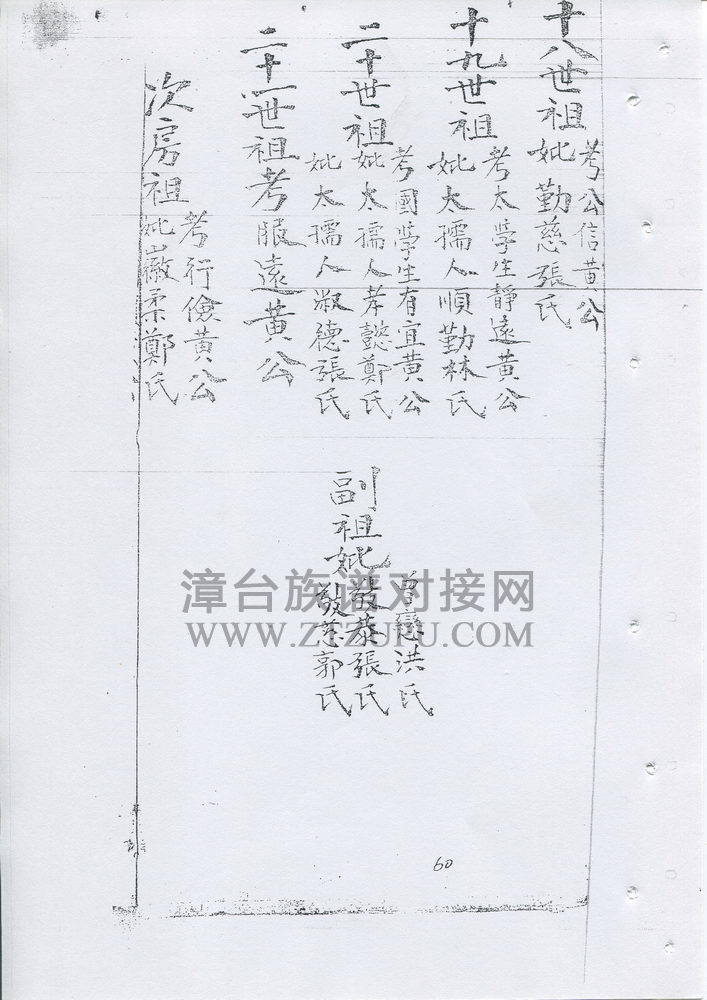 十八世祖
考公信黄公
妣勤慈張氏
十九世祖
考太學生靜遠黄公
妣太孺人順勤林氏
二十世祖
考國學生有宜黄公
妣太孺人孝懿鄭氏
妣太孺人淑德張氏
二十一世祖考服遠黄公
次房祖
考行儉黄公
妣徽柔鄭氏
副祖妣
洪氏
張氏
郭氏
漳台族谱对接网
WWW.ZTZUPU.COM
60